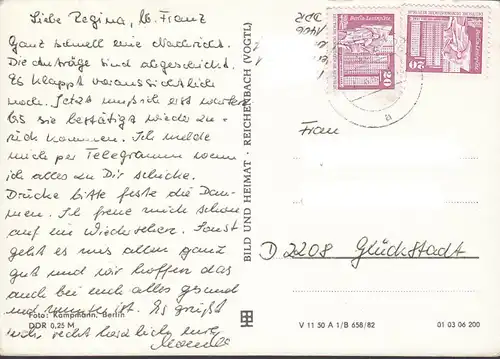 Liebe Regina, lb. Franz
Ganz schnell eine Nachricht.
Die Anträge sind abgeschickt.
Es klappt voraussichtlich
noch. Jetzt muß ich erst warten
bis sie bestätigt wieder zu-
rück kommen. Ich melde
mich per Telegramm wenn
ich alles zu Dir schicke.
Drücke bitte feste die Dau-
men. Ich freue mich schon
auf ein Wiedersehen. Sonst
geht es uns allen ganz
gut und wir hoffen das
auch bei euch alles gesund
und munter ist. Es grüßt
euch recht herzlich eure
Foto: Kampmann, Berlin
DDR 0,25 M
BILD UND HEIMAT · REICHENBACH (VOGTL)
Berlin-Leninplatz
20
20
DDR
a
Frau
D 2208 Glückstadt
V 11 50 A 1/B 658/82
01 03 06 200